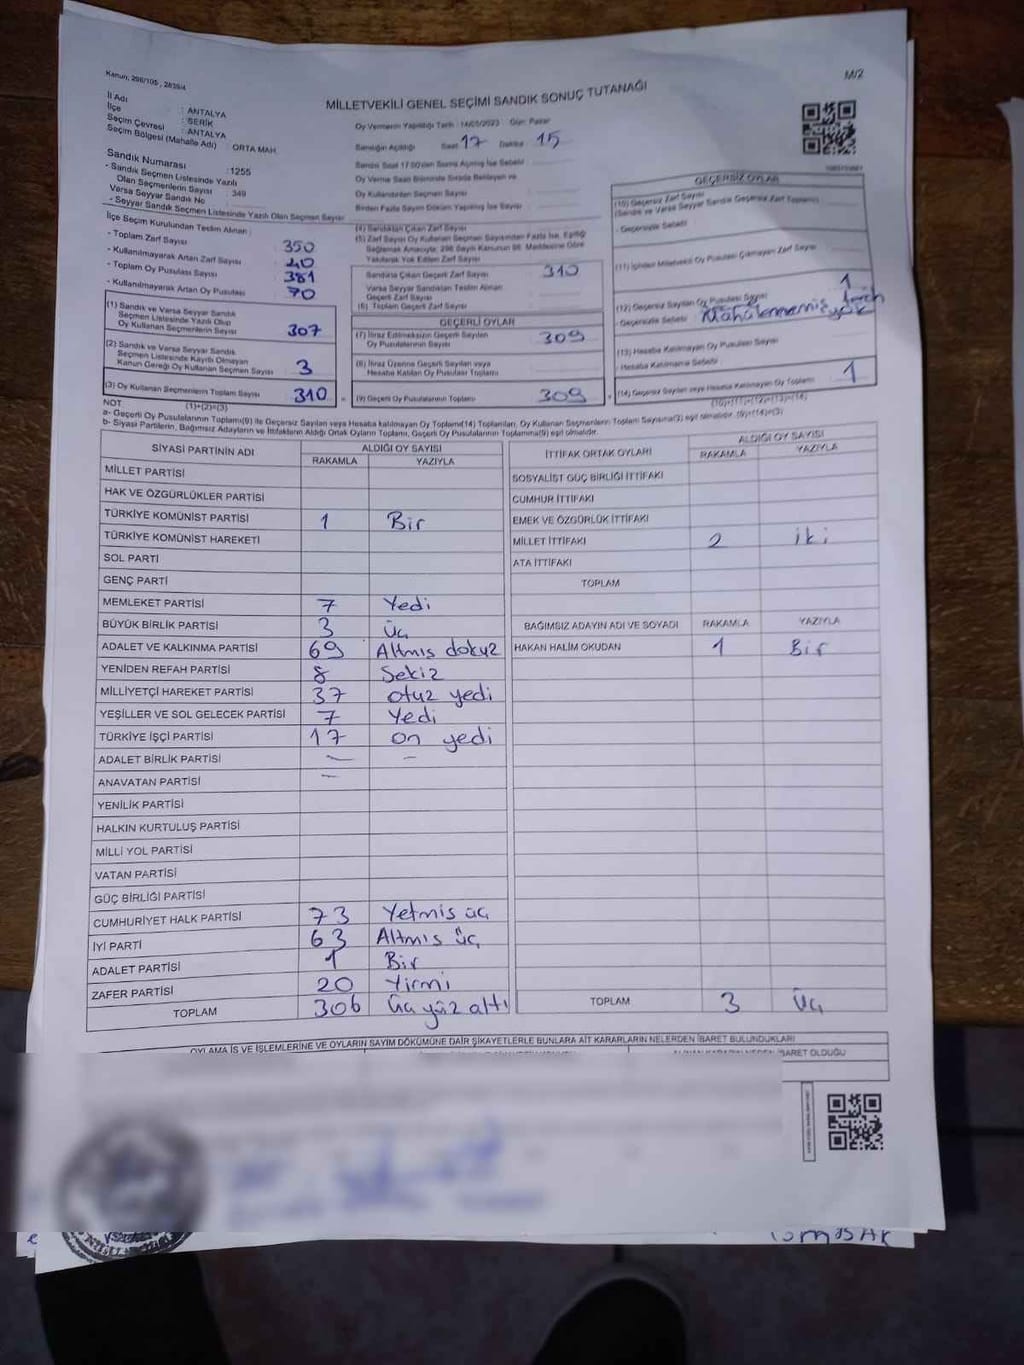 Kanun; 298/105 , 2839/4
M/2
MİLLETVEKİLİ GENEL SEÇİMİ SANDIK SONUÇ TUTANAĞI
İl Adı : ANTALYA
İlçe : SERİK
Seçim Çevresi : ANTALYA
Seçim Bölgesi (Mahalle Adı) : ORTA MAH.
Sandık Numarası : 1255
- Sandık Seçmen Listesinde Yazılı
Olan Seçmenlerin Sayısı : 349
Varsa Seyyar Sandık No
- Seyyar Sandık Seçmen Listesinde Yazılı Olan Seçmen Sayısı
Oy Vermenin Yapıldığı Tarih : 14/05/2023 Gün: Pazar
Sandığın Açıldığı Saat 17 Dakika 15
Sandık Saat 17:00'den Sonra Açılmış İse Sebebi
Oy Verme Saati Bitiminde Sırada Bekleyen ve
Oy Kullandırılan Seçmen Sayısı
Birden Fazla Sayım Döküm Yapılmış İse Sayısı
İlçe Seçim Kurulundan Teslim Alınan
- Toplam Zarf Sayısı 350
- Kullanılmayarak Artan Zarf Sayısı 40
- Toplam Oy Pusulası Sayısı 381
- Kullanılmayarak Artan Oy Pusulası 70
(1) Sandık ve Varsa Seyyar Sandık
Seçmen Listesinde Yazılı Olup
Oy Kullanan Seçmenlerin Sayısı 307
(2) Sandık ve Varsa Seyyar Sandık
Seçmen Listesinde Kayıtlı Olmayan
Kanun Gereği Oy Kullanan Seçmen Sayısı 3
(3) Oy Kullanan Seçmenlerin Toplam Sayısı 310
(1)+(2)=(3)
(4) Sandıktan Çıkan Zarf Sayısı
(5) Zarf Sayısı Oy Kullanan Seçmen Sayısından Fazla İse, Eşitliği
Sağlamak Amacıyla; 298 Sayılı Kanunun 98. Maddesine Göre
Yakılarak Yok Edilen Zarf Sayısı
Sandıkta Çıkan Geçerli Zarf Sayısı 310
Varsa Seyyar Sandıktan Teslim Alınan
Geçerli Zarf Sayısı
(6) Toplam Geçerli Zarf Sayısı
GEÇERLİ OYLAR
(7) İtiraz Edilmeksizin Geçerli Sayılan
Oy Pusulalarının Sayısı 309
(8) İtiraz Üzerine Geçerli Sayılan veya
Hesaba Katılan Oy Pusulası Toplamı
(9) Geçerli Oy Pusulalarının Toplamı 309
GEÇERSİZ OYLAR
(10) Geçersiz Zarf Sayısı
(Sandık ve Varsa Seyyar Sandık Geçersiz Zarf Toplamı)
- Geçersizlik Sebebi
(11) İçinden Milletvekili Oy Pusulası Çıkmayan Zarf Sayısı
(12) Geçersiz Sayılan Oy Pusulası Sayısı 1
- Geçersizlik Sebebi
(13) Hesaba Katılmayan Oy Pusulası Sayısı
- Hesaba Katılmama Sebebi
(14) Geçersiz Sayılan veya Hesaba Katılmayan Oy Toplamı 1
(10)+(11)+(12)+(13)=(14)
NOT
a- Geçerli Oy Pusulalarının Toplamı(9) ile Geçersiz Sayılan veya Hesaba katılmayan Oy Toplamı(14) Toplamları, Oy Kullanan Seçmenlerin Toplam Sayısına(3) eşit olmalıdır. (9)+(14)=(3)
b- Siyasi Partilerin, Bağımsız Adayların ve İttifakların Aldığı Ortak Oyların Toplamı, Geçerli Oy Pusulalarının Toplamına(9) eşit olmalıdır.
SİYASİ PARTİNİN ADI ALDIĞI OY SAYISI
RAKAMLA YAZIYLA
MİLLET PARTİSİ
HAK VE ÖZGÜRLÜKLER PARTİSİ
TÜRKİYE KOMÜNİST PARTİSİ 1 Bir
TÜRKİYE KOMÜNİST HAREKETİ
SOL PARTİ
GENÇ PARTİ
MEMLEKET PARTİSİ 7 Yedi
BÜYÜK BİRLİK PARTİSİ 3 Üç
ADALET VE KALKINMA PARTİSİ 69 Altmış dokuz
YENİDEN REFAH PARTİSİ 8 Sekiz
MİLLİYETÇİ HAREKET PARTİSİ 37 otuz yedi
YEŞİLLER VE SOL GELECEK PARTİSİ 7 Yedi
TÜRKİYE İŞÇİ PARTİSİ 17 on yedi
ADALET BİRLİK PARTİSİ — —
ANAVATAN PARTİSİ —
YENİLİK PARTİSİ
HALKIN KURTULUŞ PARTİSİ
MİLLİ YOL PARTİSİ
VATAN PARTİSİ
GÜÇ BİRLİĞİ PARTİSİ
CUMHURİYET HALK PARTİSİ 73 Yetmiş üç
İYİ PARTİ 63 Altmış üç
ADALET PARTİSİ 1 Bir
ZAFER PARTİSİ 20 Yirmi
TOPLAM 306 Üç yüz altı
İTTİFAK ORTAK OYLARI ALDIĞI OY SAYISI
RAKAMLA YAZIYLA
SOSYALİST GÜÇ BİRLİĞİ İTTİFAKI
CUMHUR İTTİFAKI
EMEK VE ÖZGÜRLÜK İTTİFAKI
MİLLET İTTİFAKI 2 iki
ATA İTTİFAKI
TOPLAM
BAĞIMSIZ ADAYIN ADI VE SOYADI RAKAMLA YAZIYLA
HAKAN HALİM OKUDAN 1 Bir
TOPLAM 3 Üç
OYLAMA İŞ VE İŞLEMLERİNE VE OYLARIN SAYIM DÖKÜMÜNE DAİR ŞİKAYETLERLE BUNLARA AİT KARARLARIN NELERDEN İBARET BULUNDUKLARI